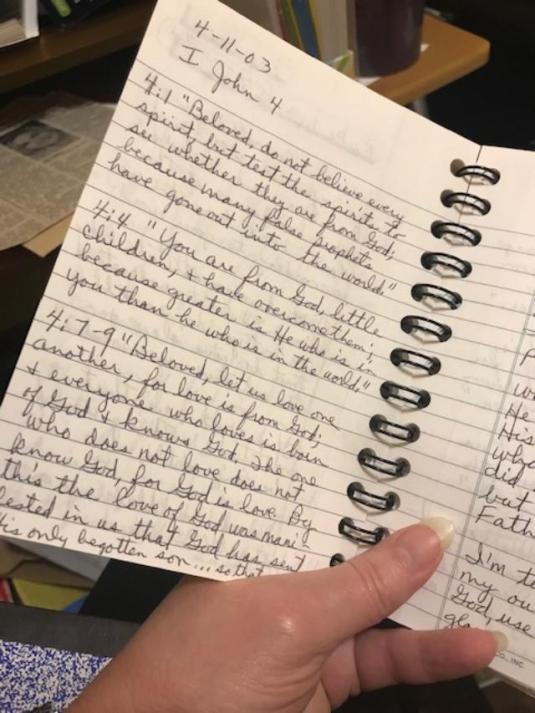 4-11-03
I John 4
4:1 "Beloved, do not believe every
spirit, but test the spirits to
see whether they are from God;
because many false prophets
have gone out into the world."
4:4 "You are from God, little
children, + have overcome them;
because greater is He who is in
you than he who is in the world."
4:7-9 "Beloved, let us love one
another, for love is from God;
+ everyone who loves is born
of God + knows God. The one
who does not love does not
know God, for God is love. By
this the love of God was mani-
fested in us that God has sent
His only begotten son ... so that
He
His
who
did
but
Fath
I'm te
my ou
God, use
INC.